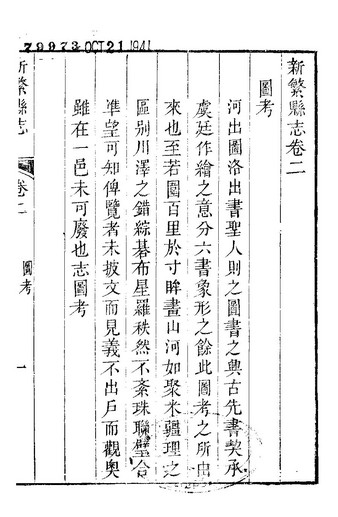 79973 OCT 21 1941
新繁縣志卷二
圖考
河出圖洛出書聖人則之圖書之興古先書契承
虞廷作繪之意分六書象形之餘此圖考之所由
來也至若圖百里於寸眸畫山河如聚米疆理之
區别川澤之錯綜碁布星羅秩然不紊珠聯璧合
準望可知俾覽者未披文而見義不出戶而觀奧
雖在一邑未可廢也志圖考
新繁縣志
卷二
圖考
一